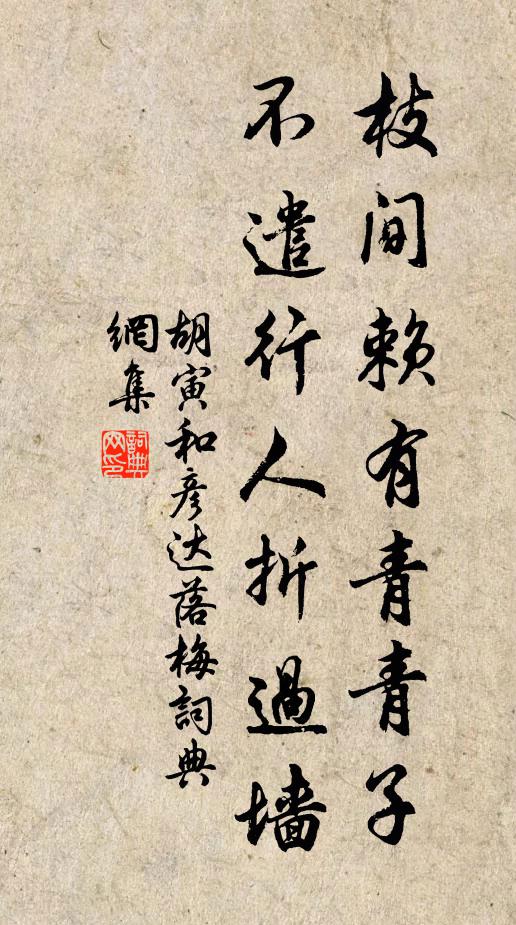 枝间赖有青青子
不遣行人折過墙
胡寅和彦达落梅詞典
網集
詞典
网印